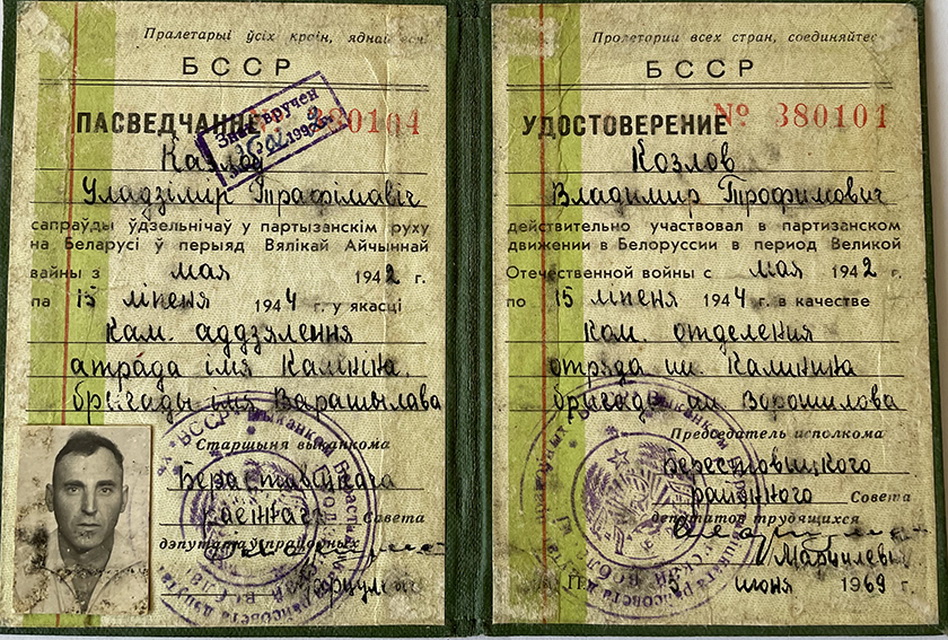 Пралетарыі ўсіх краін, яднай
БССР
ПАСВЕДЧАННЕ № 380104
Знак вручен
Казлоў
Уладзімір Трафімавіч
сапраўды ўдзельнічаў у партызанскім руху
на Беларусі ў перыяд Вялікай Айчыннай
вайны з мая 1942 г.
па 15 ліпеня 1944 г. у якасці
Кам. аддзялення
атрада імя Калініна.
брыгады імя Варашылава
Старшыня выканкома
Бераставіцкага
Савета
дэпутатаў працоўных
Пролетарии всех стран, соединяйтесь
БССР
УДОСТОВЕРЕНИЕ № 380101
Козлов
Владимир Трофимович
действительно участвовал в партизанском
движении в Белоруссии в период Великой
Отечественной войны с мая 1942 г.
по 15 ліпеня 1944 г. в качестве
Ком. отделения
отряда им. Калинина
бригады им Ворошилова
Председатель исполкома
Берестовицкого
районного Совета
депутатов трудящихся
июня 1969 г.